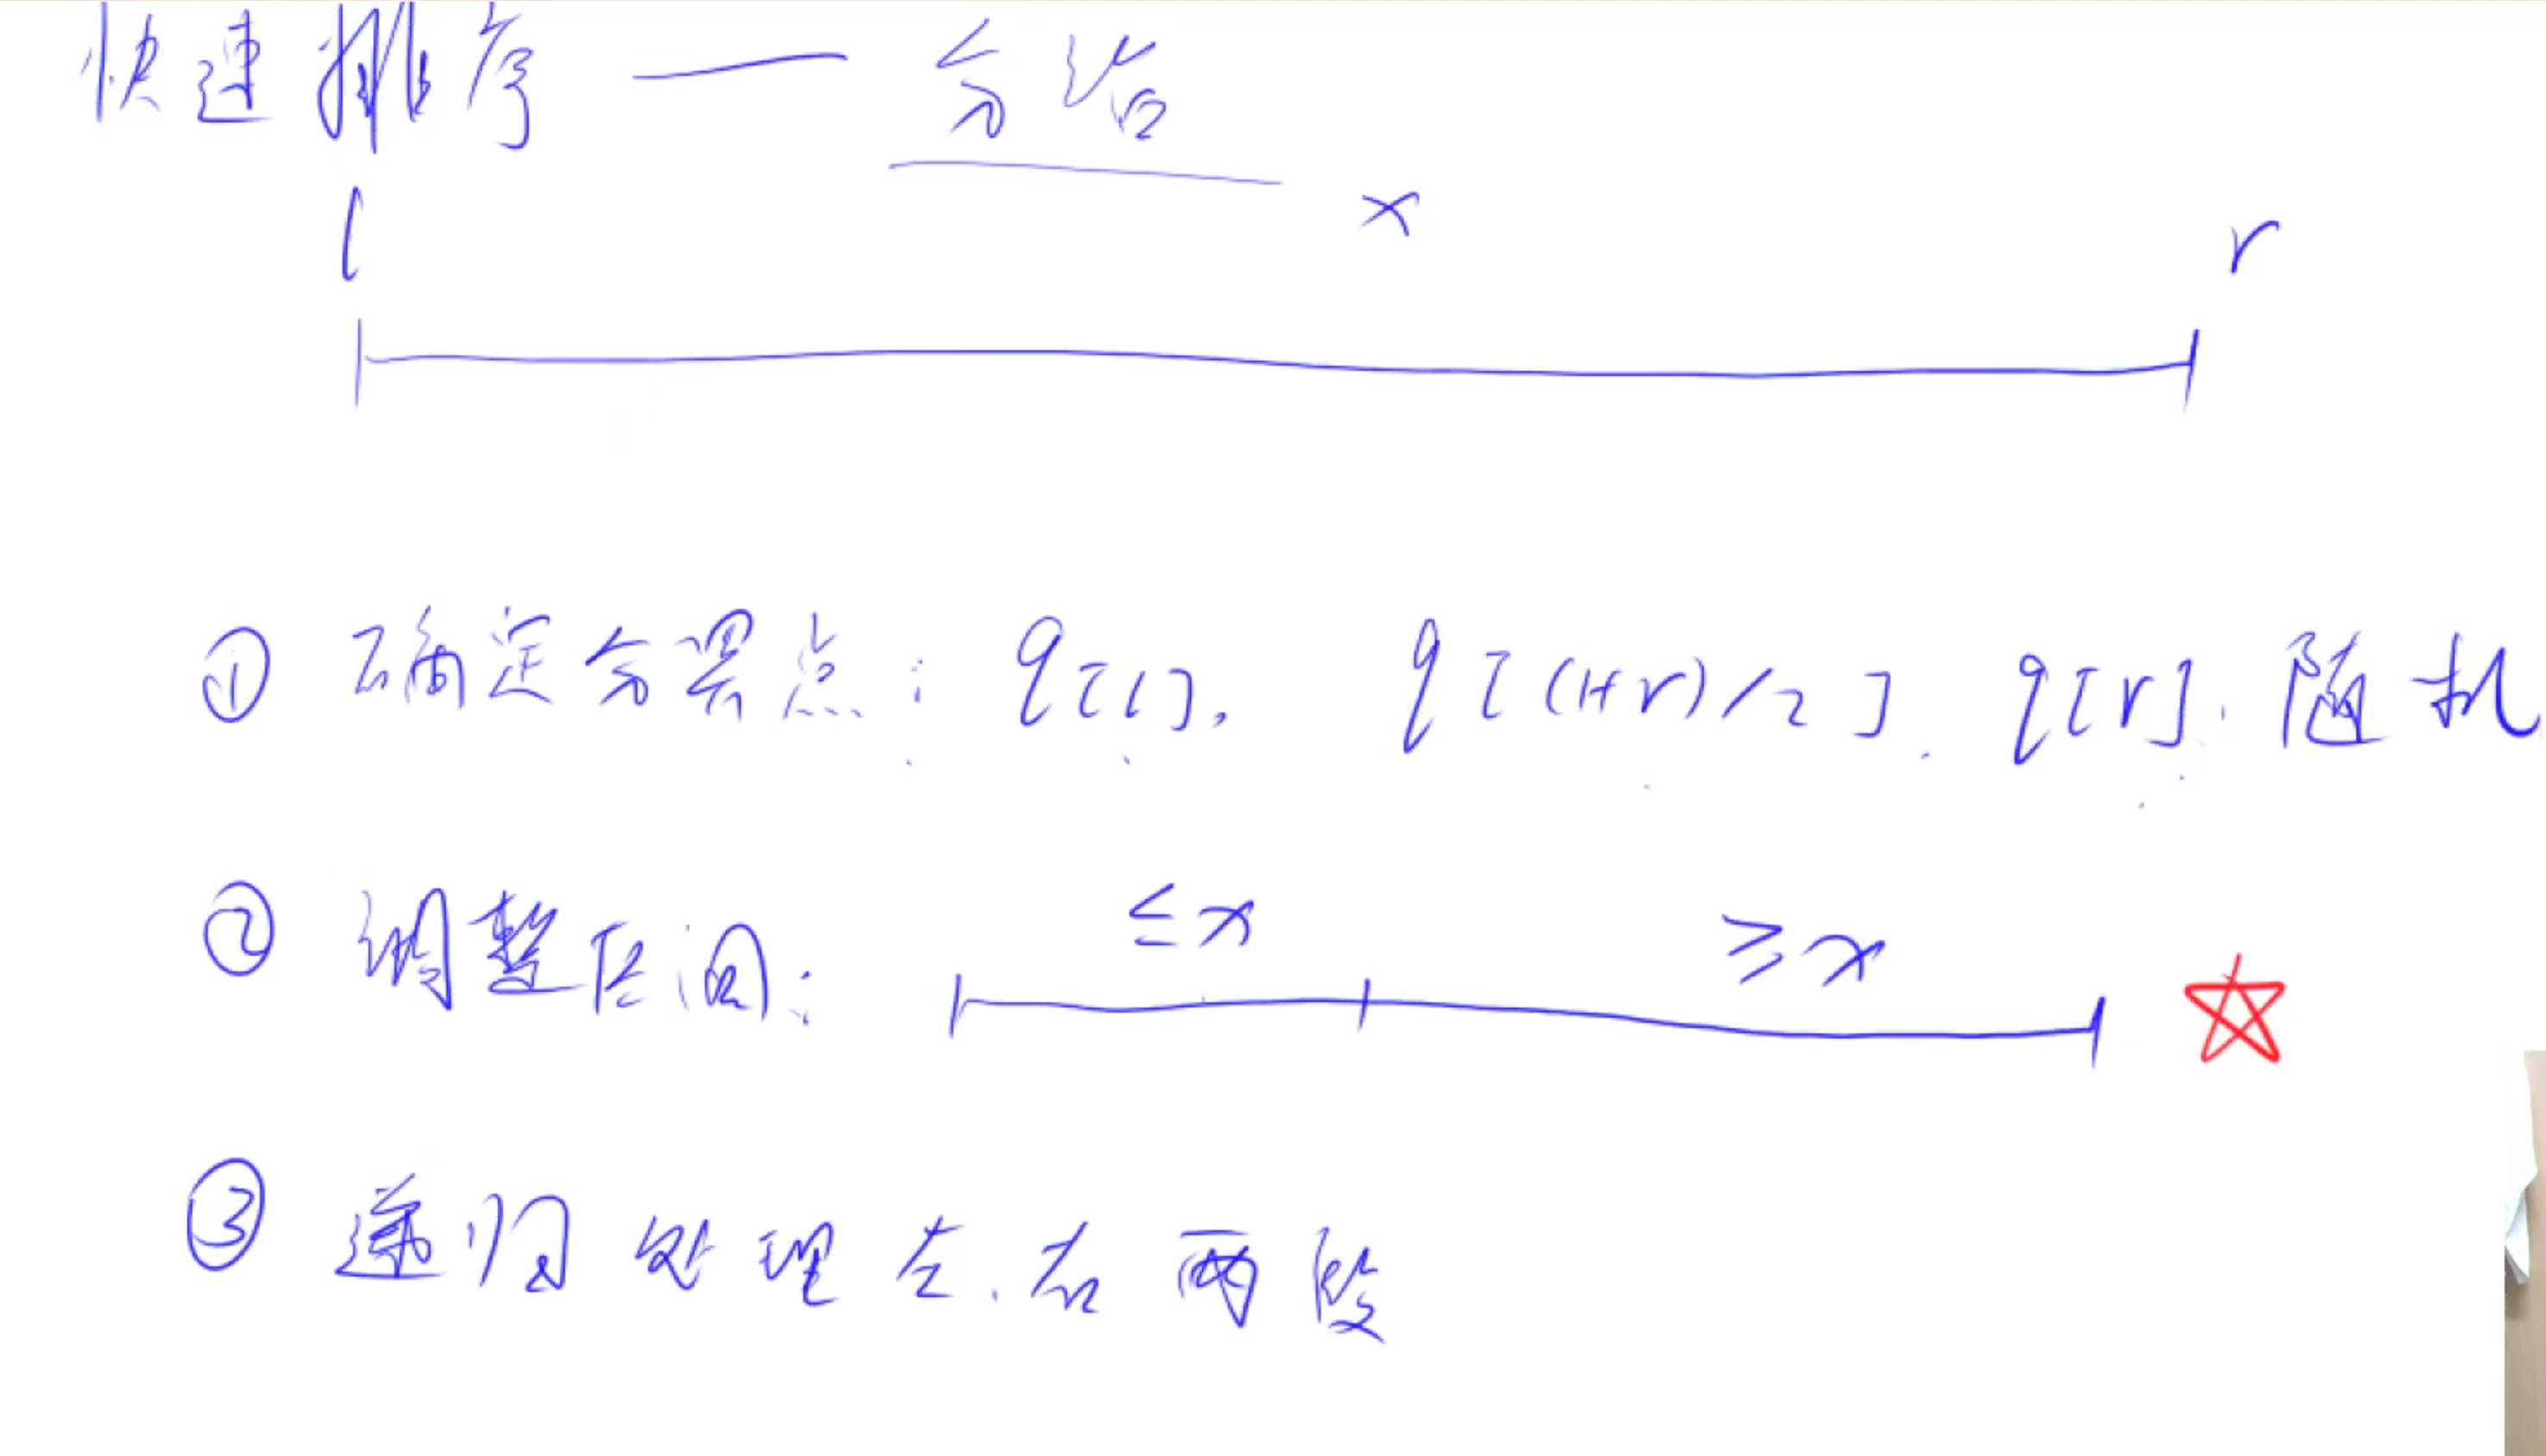 快速排序 —— 分治
l x r
① 确定分界点: q[l], q[(l+r)/2], q[r], 随机
≤x ≥x
② 调整区间:
③ 递归处理左、右两段